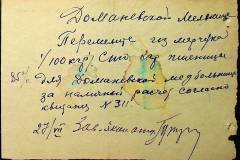 Доманевской Мельнице
Перемелите из мерчука
1/100 кгр/ Сто кгр пшеницы
85%
для Доманевской медбольницы
за наличный расчет согласно
квитанц. N 311
27/VII Зав.